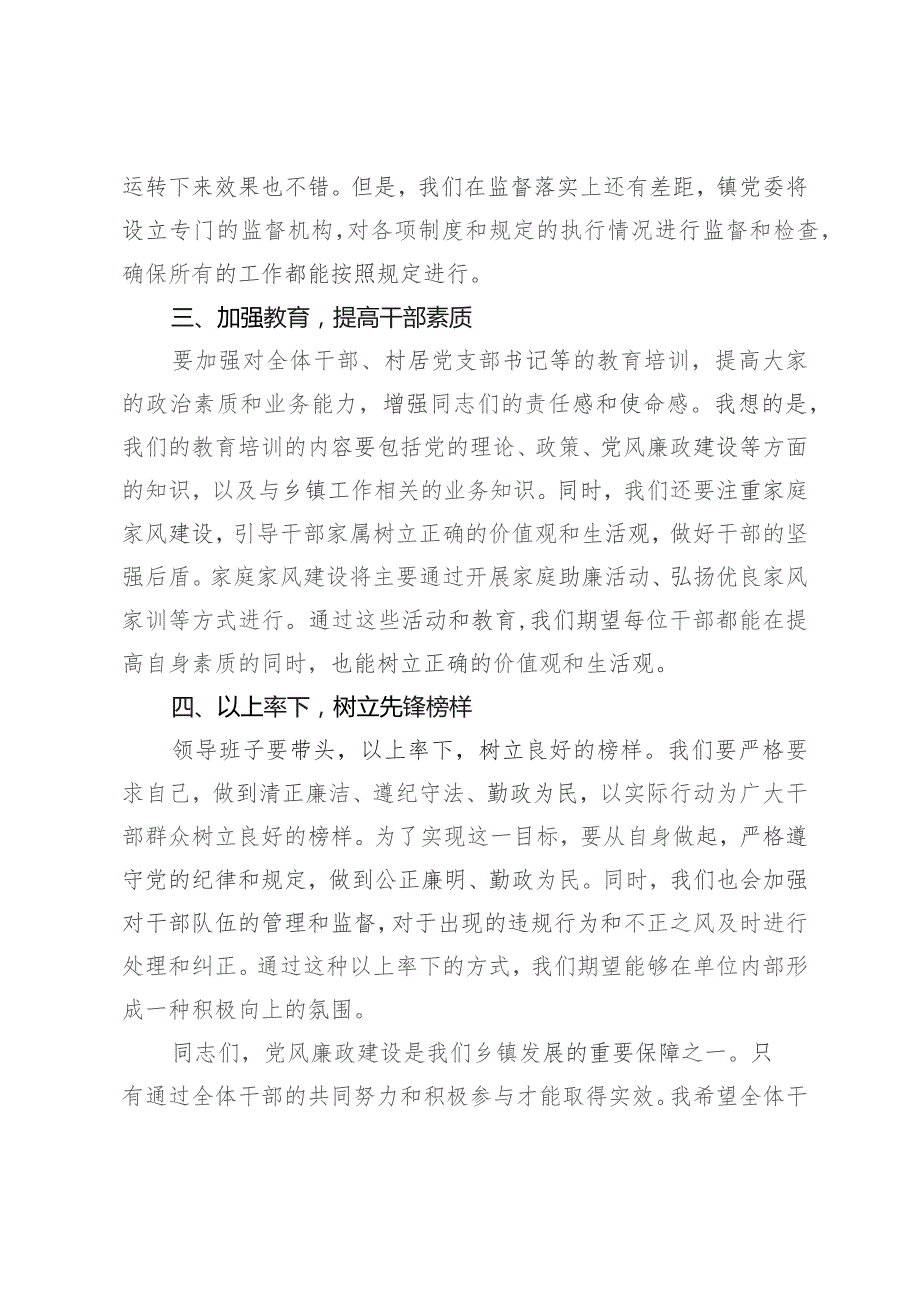 运转下来效果也不错。但是，我们在监督落实上还有差距，镇党委将
设立专门的监督机构，对各项制度和规定的执行情况进行监督和检查，
确保所有的工作都能按照规定进行。
三、加强教育，提高干部素质
要加强对全体干部、村居党支部书记等的教育培训，提高大家
的政治素质和业务能力，增强同志们的责任感和使命感。我想的是，
我们的教育培训的内容要包括党的理论、政策、党风廉政建设等方面
的知识，以及与乡镇工作相关的业务知识。同时，我们还要注重家庭
家风建设，引导干部家属树立正确的价值观和生活观，做好干部的坚
强后盾。家庭家风建设将主要通过开展家庭助廉活动、弘扬优良家风
家训等方式进行。通过这些活动和教育，我们期望每位干部都能在提
高自身素质的同时，也能树立正确的价值观和生活观。
四、以上率下，树立先锋榜样
领导班子要带头，以上率下，树立良好的榜样。我们要严格要
求自己，做到清正廉洁、遵纪守法、勤政为民，以实际行动为广大干
部群众树立良好的榜样。为了实现这一目标，要从自身做起，严格遵
守党的纪律和规定，做到公正廉明、勤政为民。同时，我们也会加强
对干部队伍的管理和监督，对于出现的违规行为和不正之风及时进行
处理和纠正。通过这种以上率下的方式，我们期望能够在单位内部形
成一种积极向上的氛围。
同志们，党风廉政建设是我们乡镇发展的重要保障之一。只
有通过全体干部的共同努力和积极参与才能取得实效。我希望全体干